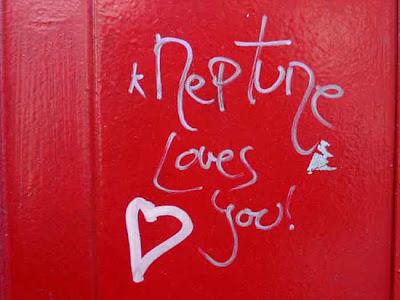 *Neptune
Loves
you!